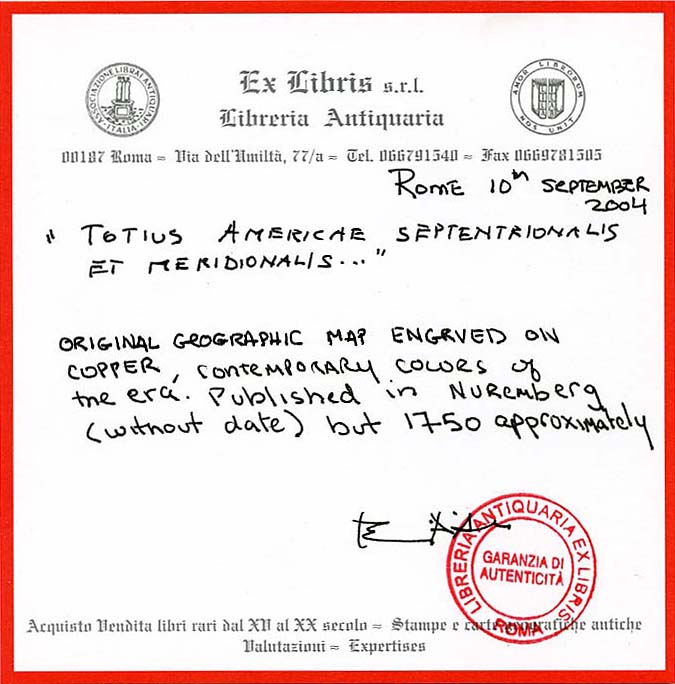 ASSOCIAZIONE LIBRAI ANTIQUARI
ITALIA
Ex Libris s.r.l.
Libreria Antiquaria
AMOR LIBRORUM
NOS UNIT
00187 Roma = Via dell'Umiltà, 77/a = Tel. 066791540 = Fax 0669781505
ROME 10th SEPTEMBER
2004
" TOTIUS AMERICAE SEPTENTRIONALIS
ET MERIDIONALIS... "
ORIGINAL GEOGRAPHIC MAP ENGRVED ON
COPPER, CONTEMPORARY COLORS OF
the era. Published in Nuremberg
(without date) but 1750 approximately
LIBRERIA ANTIQUARIA EX LIBRIS
GARANZIA DI
AUTENTICITÀ
ROMA
Acquisto Vendita libri rari dal XV al XX secolo = Stampe e carte geografiche antiche
Valutazioni = Expertises